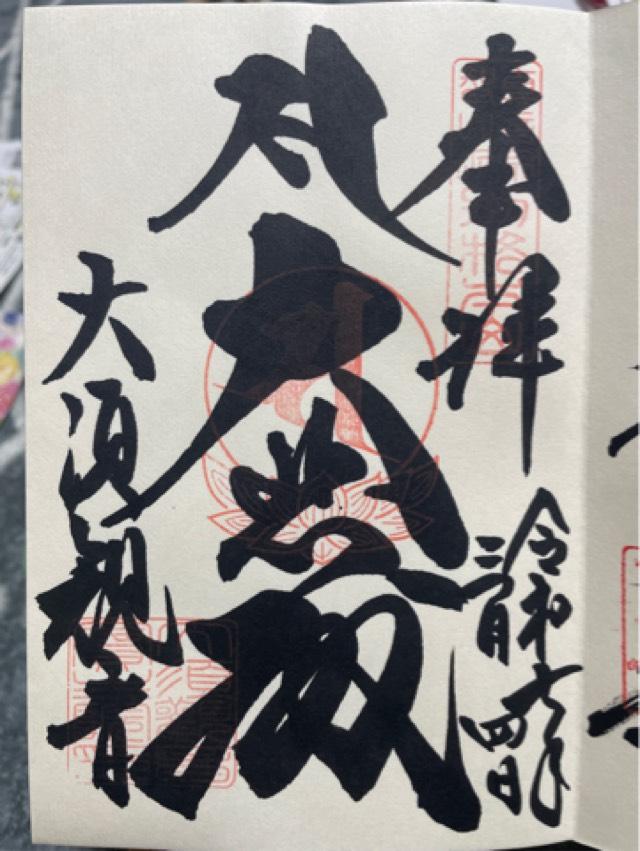 奉拝
令和六年
三月四日
大悲殿
大須観音